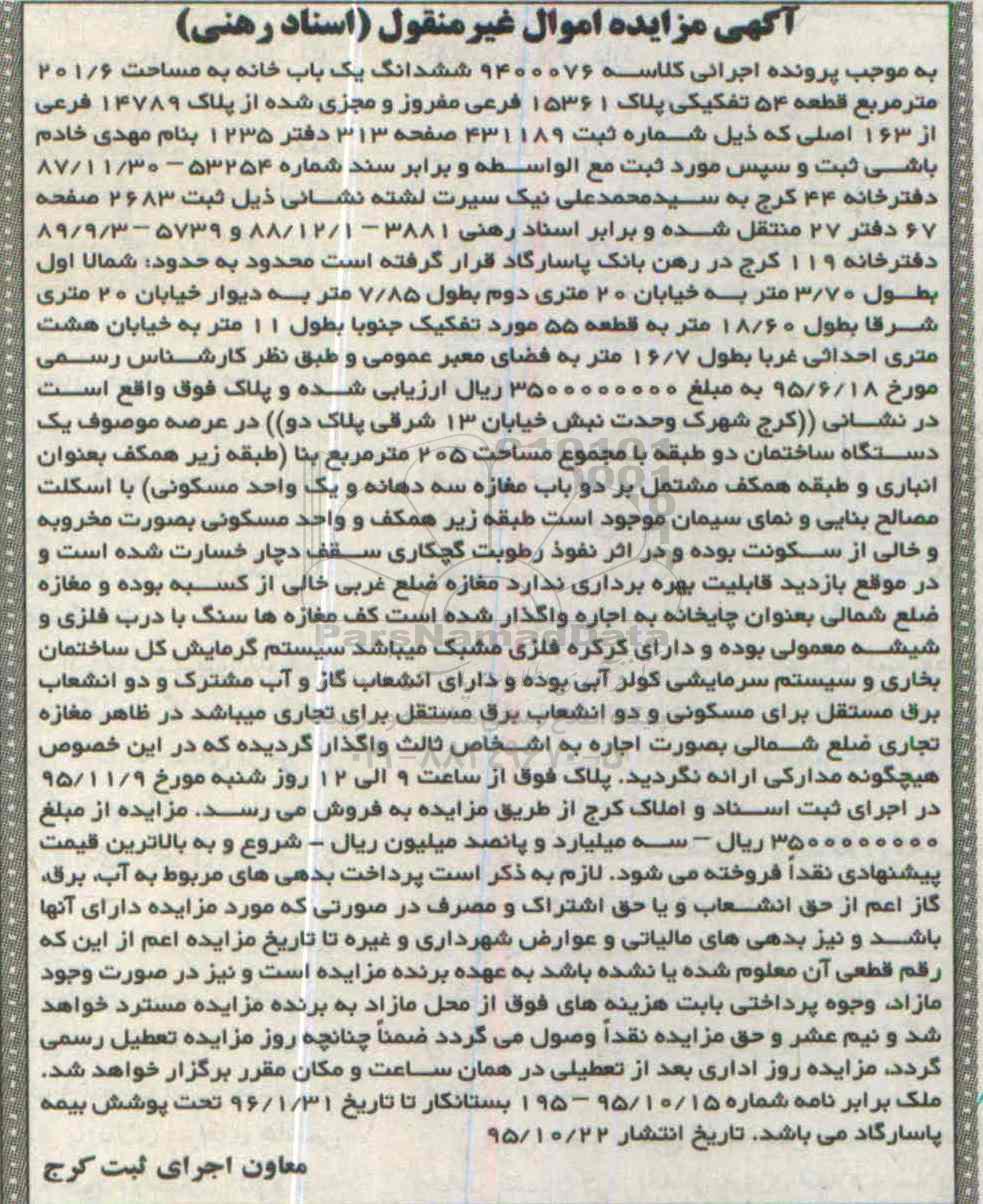 آگهی مزایده اموال غیرمنقول (اسناد رهنی)
به موجب پرونده اجرائی کلاسه ۹۴۰۰۰۷۶ ششدانگ یک باب خانه به مساحت ۲۰۱/۶
مترمربع قطعه ۵۴ تفکیکی پلاک ۱۵۳۶۱ فرعی مفروز و مجزی شده از پلاک ۱۴۷۸۹ فرعی
از ۱۶۳ اصلی که ذیل شماره ثبت ۴۳۱۱۸۹ صفحه ۳۱۳ دفتر ۱۲۳۵ بنام مهدی خادم
باشی ثبت و سپس مورد ثبت مع الواسطه و برابر سند شماره ۵۳۲۵۴ – ۸۷/۱۱/۳۰
دفترخانه ۴۴ کرج به سیدمحمدعلی نیک سیرت لشته نشانی ذیل ثبت ۲۶۸۳ صفحه
۶۷ دفتر ۲۷ منتقل شده و برابر اسناد رهنی ۳۸۸۱ – ۸۸/۱۲/۱ و ۵۷۳۹ – ۸۹/۹/۳
دفترخانه ۱۱۹ کرج در رهن بانک پاسارگاد قرار گرفته است محدود به حدود: شمالا اول
بطول ۳/۷۰ متر به خیابان ۲۰ متری دوم بطول ۷/۸۵ متر به دیوار خیابان ۲۰ متری
شرقا بطول ۱۸/۶۰ متر به قطعه ۵۵ مورد تفکیک جنوبا بطول ۱۱ متر به خیابان هشت
متری احداثی غربا بطول ۱۶/۷ متر به فضای معبر عمومی و طبق نظر کارشناس رسمی
مورخ ۹۵/۶/۱۸ به مبلغ ۳۵۰۰۰۰۰۰۰۰ ریال ارزیابی شده و پلاک فوق واقع است
در نشانی ((کرج شهرک وحدت نبش خیابان ۱۳ شرقی پلاک دو)) در عرصه موصوف یک
دستگاه ساختمان دو طبقه با مجموع مساحت ۲۰۵ مترمربع بنا (طبقه زیر همکف بعنوان
انباری و طبقه همکف مشتمل بر دو باب مغازه سه دهانه و یک واحد مسکونی) با اسکلت
مصالح بنایی و نمای سیمان موجود است طبقه زیر همکف و واحد مسکونی بصورت مخروبه
و خالی از سکونت بوده و در اثر نفوذ رطوبت گچکاری سقف دچار خسارت شده است و
در موقع بازدید قابلیت بهره برداری ندارد مغازه ضلع غربی خالی از کسبه بوده و مغازه
ضلع شمالی بعنوان چایخانه به اجاره واگذار شده است کف مغازه ها سنگ با درب فلزی و
شیشه معمولی بوده و دارای کرکره فلزی مشبک میباشد سیستم گرمایش کل ساختمان
بخاری و سیستم سرمایشی کولر آبی بوده و دارای انشعاب گاز و آب مشترک و دو انشعاب
برق مستقل برای مسکونی و دو انشعاب برق مستقل برای تجاری میباشد در ظاهر مغازه
تجاری ضلع شمالی بصورت اجاره به اشخاص ثالث واگذار گردیده که در این خصوص
هیچگونه مدارکی ارائه نگردید. پلاک فوق از ساعت ۹ الی ۱۲ روز شنبه مورخ ۹۵/۱۱/۹
در اجرای ثبت اسناد و املاک کرج از طریق مزایده به فروش می رسد. مزایده از مبلغ
۳۵۰۰۰۰۰۰۰۰ ریال – سه میلیارد و پانصد میلیون ریال – شروع و به بالاترین قیمت
پیشنهادی نقداً فروخته می شود. لازم به ذکر است پرداخت بدهی های مربوط به آب، برق،
گاز اعم از حق انشعاب و یا حق اشتراک و مصرف در صورتی که مورد مزایده دارای آنها
باشد و نیز بدهی های مالیاتی و عوارض شهرداری و غیره تا تاریخ مزایده اعم از این که
رقم قطعی آن معلوم شده یا نشده باشد به عهده برنده مزایده است و نیز در صورت وجود
مازاد، وجوه پرداختی بابت هزینه های فوق از محل مازاد به برنده مزایده مسترد خواهد
شد و نیم عشر و حق مزایده نقداً وصول می گردد ضمناً چنانچه روز مزایده تعطیل رسمی
گردد، مزایده روز اداری بعد از تعطیلی در همان ساعت و مکان مقرر برگزار خواهد شد.
ملک برابر نامه شماره ۹۵/۱۰/۱۵ – ۱۹۵ بستانکار تا تاریخ ۹۶/۱/۳۱ تحت پوشش بیمه
پاسارگاد می باشد. تاریخ انتشار ۹۵/۱۰/۲۲
معاون اجرای ثبت کرج
ParsNamadData